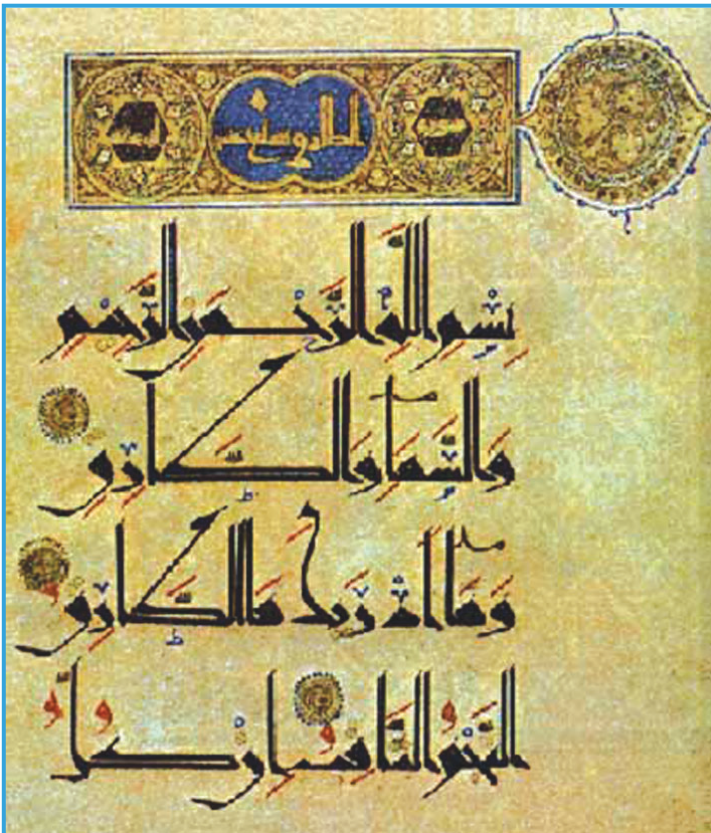 بِسْمِ اللَّهِ الرَّحْمَنِ الرَّحِيمِ
وَالسَّمَآءِ وَالطَّارِقِ
وَمَآ أَدْرَىكَ مَا الطَّارِقُ
النَّجْمُ الثَّاقِبُ إِن كُلُّ